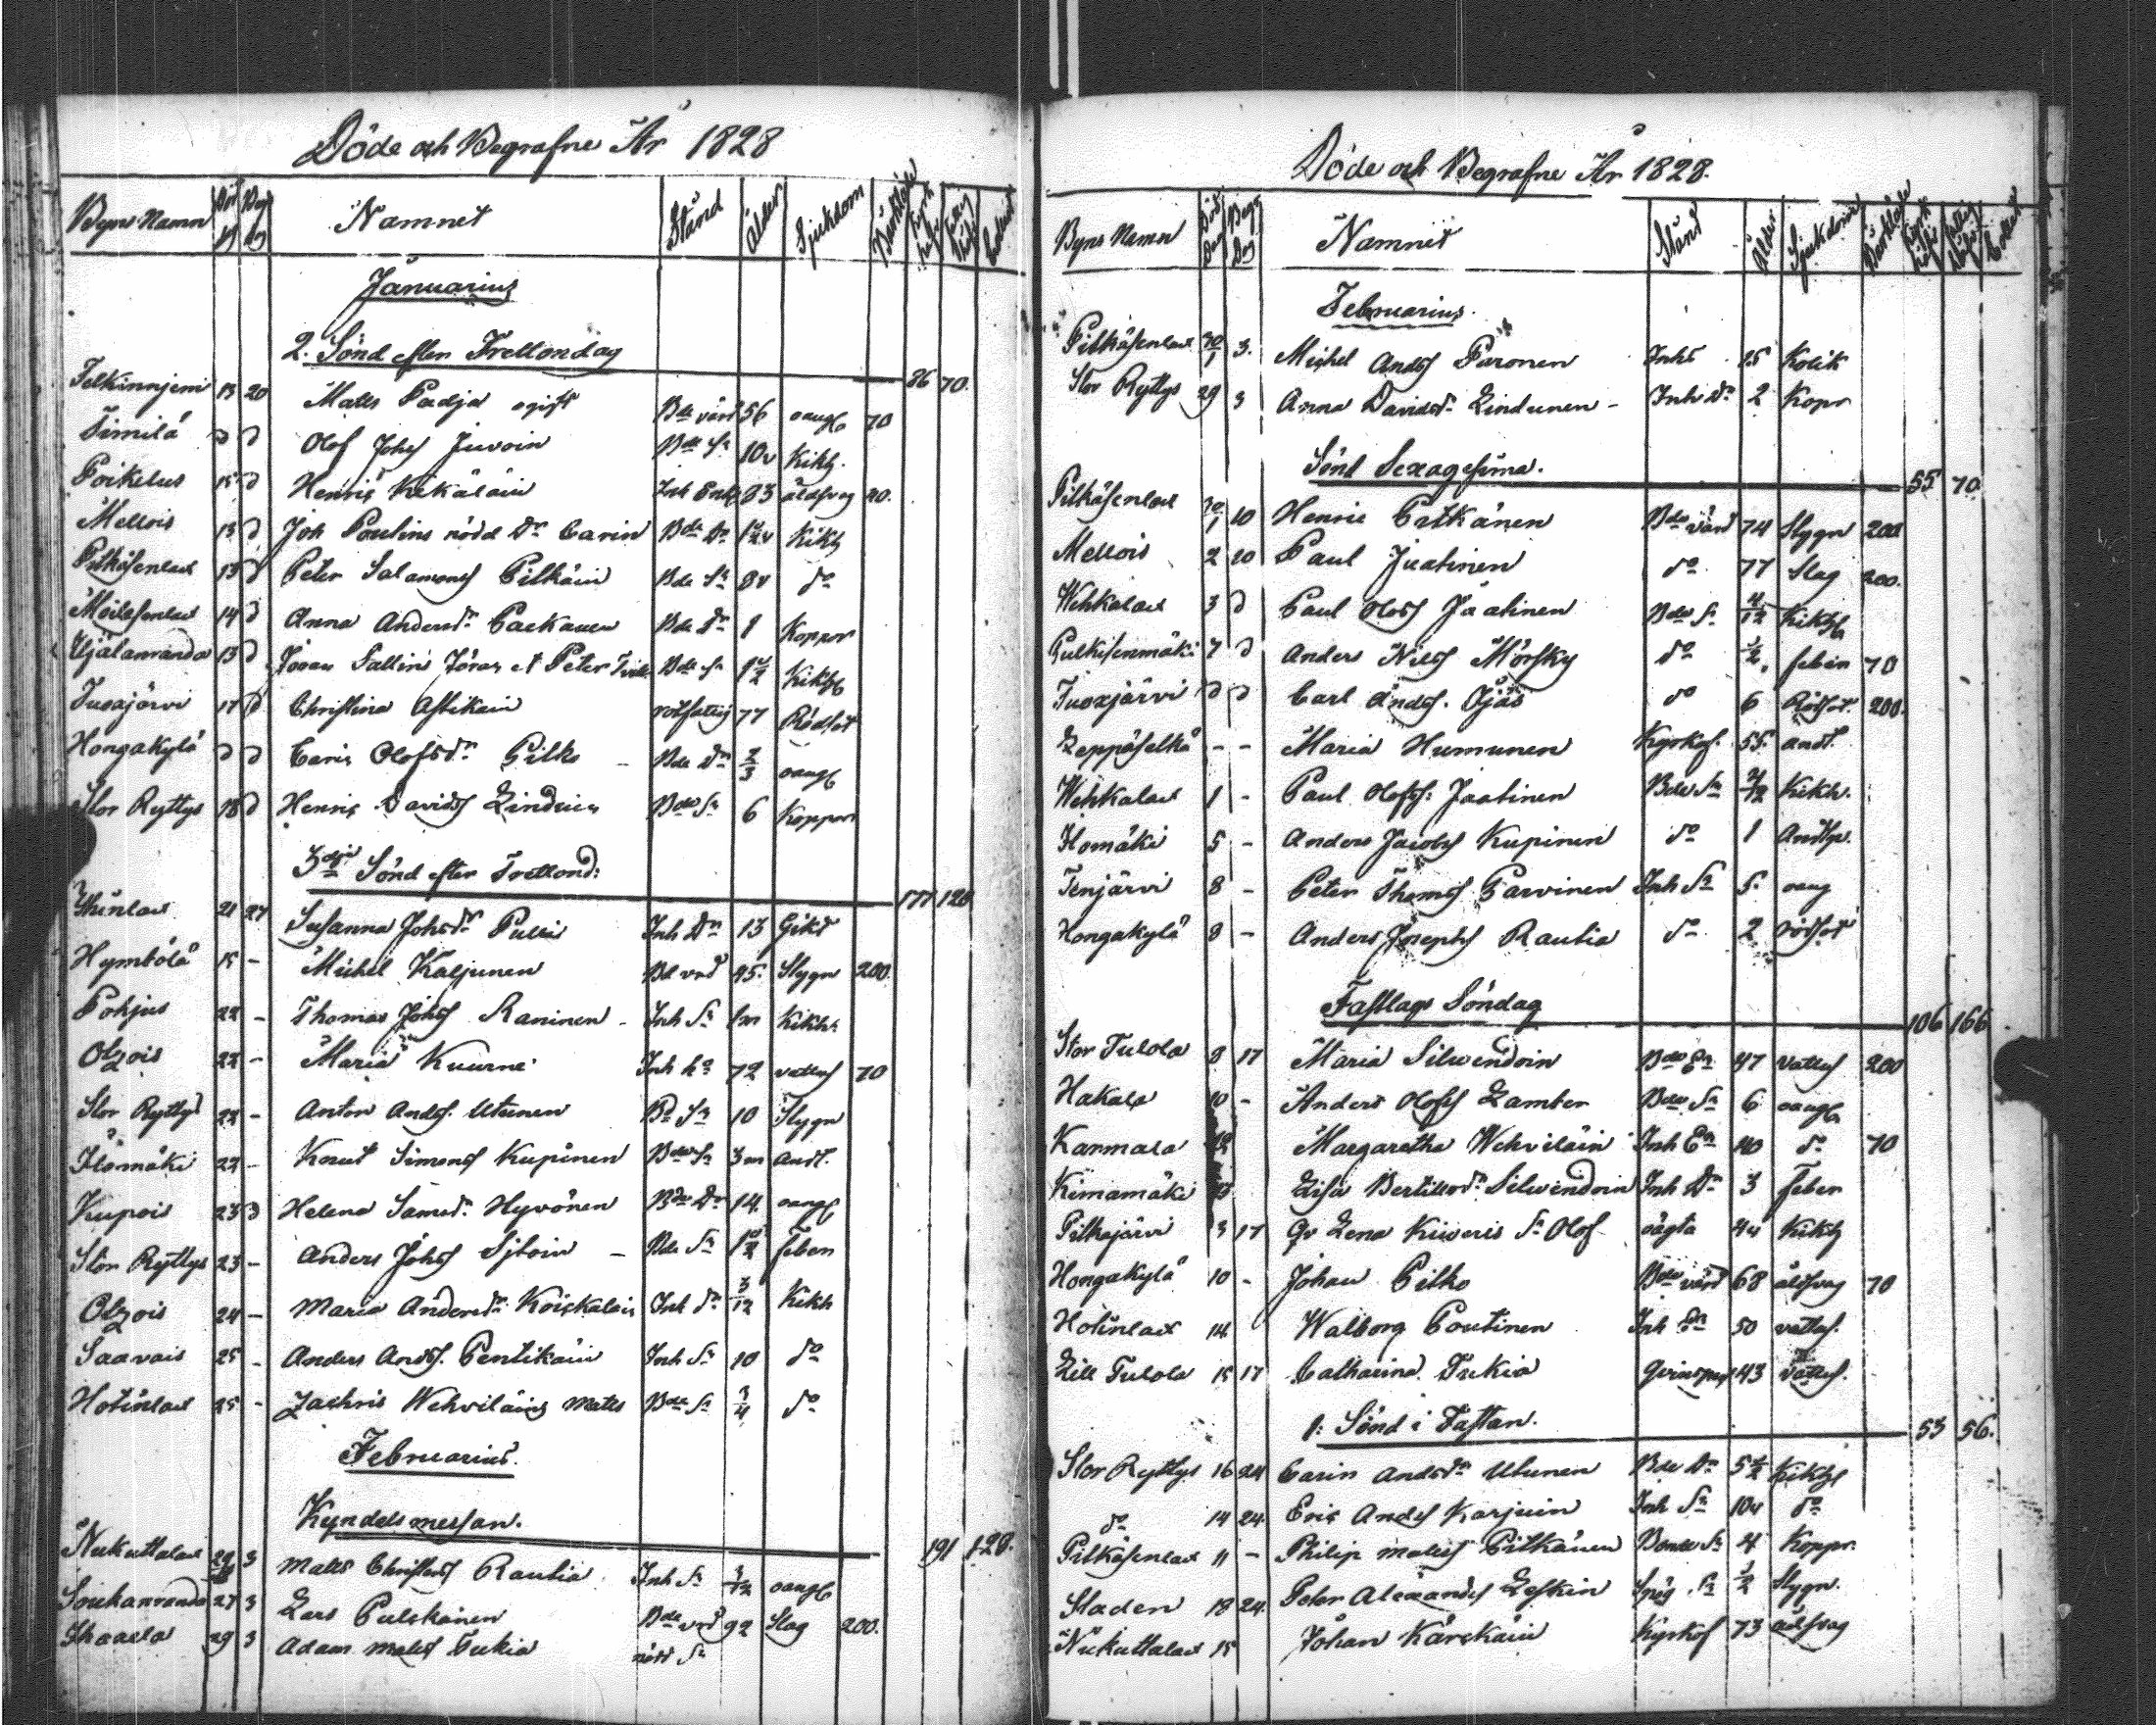 Döde och Begrafne År 1828
Byns Namn Död Dg Beg Dg Namnet Stånd Ålder Sjukdom Bårkläde Kyrk håf Fattig Håf
Januarius
2. Sönd efter Trettondag 86 70.
Telkinnjemi 13 20 Matts Padja ogift Bde värd 56 oangf 70
Similä d d Olof Johsf Juvoin Bde Sn 10v Kikh.
Poikelus 15 d Henric Kekäläin Inh Enkl 83 åldsvag 20.
Mellois 13 d Joh Poutins nödd Dr Carin Bde Dr Kikh
Pitkäsenlax 13 d Peter Salamonsf Pitkäin Bde Sn 8v do
Moilasenlax 14 d Anna Andersdr Paekanen Bde Dr 1 Koppor
13 d Jöran Sallins Jöran et Peter Bde Sn Kikh
Juoxjärvi 17 d Christina Astikain rotfattig 77 Rödsot
Hongakylä d d Carin Olofsdr Pilko – Bde Dr 2/3 oangf
Stor Ryttys 18 d Henric Davidsf Lindvin Bde Sn 6 Koppor
3dje Sönd efter Trettond: 177 120
Ihinlax 21 27 Susanna Johsdr Pulli Inh Dr 13 Gikt
Hymbölä 15 – Michel Kaljunen Bd vrd 45. Stygn 200.
Pohjus 22 – Thomas Johsf Raninen – Inh Sn 1m Kikh.
Otzois 22 – Maria Kuurne Inh h 72 vattus 70
Stor Ryttys 22 – Anton Andsf. Utunen Bd Sn 10 Stygn
Ilomäki 22 – Knut Simonsf Kupinen Bde Sn 3m Andt.
Kupois 23 3 Helena Samsdr Hyvönen Bde Dr 14. oangf
Stor Ryttys 23 – Anders Johsf Sjtoin – Bde Sn 1 1/2 feber
Otzois 24 – Maria Andersdr Koickalain Inh dr 3/12 Kikh
Saavais 25 – Anders Andsf. Pentikäin Inh Sn 10 do
Hotinlax 25 – Zachris Wehviläins Matts Bde Sn 3/4 do
Februarius.
Kyndelsmessan. 191 120.
Nukuttalax 29 3 Matts Christersf Rautia Inh Sn 3/12 oangf
Soukanranda 27 3 Lars Pulskanen Bde vrd 92 Slag 200.
Ihaala 29 3 Adam Mattsf Tukia nödd Sn
Döde och Begrafne År 1828.
Byns Namn Död Dag Begr Dag Namnet Stånd Ålder Sjukdom Bårkläde Kyrk håf fattig håf
Februarius.
Pitkäsenlax 30/1 3. Michel Andsf Paronen Inhs 15 Kolik
Stor Ryttys 29 3 Anna Davidsdr Lindunen – Inh Dr 2 Kopr
Sönd Sexagesima. 55 70
Pitkäsenlax 30/1 10 Henric Pitkänen Bde värd 74 Stygn 200
Mellois 2 10 Paul Jaatinen do 77 Slag 200.
Wehkalax 3 d Paul Olofsf Jaatinen Bde Sn 4/12 Kikh
Pulkisenmäki 7 d Anders Nilsf Mörsky do 1/2 feber 70
Juoxjärvi d d Carl Andsf. Ojas do 6 Rödsot. 200.
Leppäselkä – – Maria Humunen Kyrkof. 55. andt.
Wehkalax 1 – Paul Olofsf: Jaatinen Bde Sn 4/12 Kikh.
Ilomäki 5 – Anders Jacobsf Kupinen do 1 Andtp.
Tenjärvi 8 – Peter Thomsf Parvinen Inh Sn 5. oang
Hongakylä 8 – Anders Josephsf Rautia do 2 rödsot
Fastlags Söndag 106 166
Stor Tulola 8 17 Maria Silvendoin Bde En 47 vattus 200
Hakala 10 – Anders Olofsf Lamber Bde Sn 6 oangf
Karmala 12 Margaretha Wehviläin Inh En 40 do 70
Kirnamäki 13 Lisa Bertillsdr Silvendoin Inh Dr 3 feber
Pitkäjärvi 3 17 Qv Lena Kiiveris Sn Olof oägta 4v Kikh
Hongakylä 10 – Johan Pilko Bde värd 68 åldsvag 70
Hotinlax 14 Walborg Poutinen Inh En 50 vattus.
Lill Tulola 15 17 Catharina Tukia 43 vattus.
1: Sönd i Fastan. 53 56.
Stor Ryttys 16 24 Carin Andsdr Utunen Bde Dr 5 1/2 Kikh
do 14 24. Eric Andsf Karjuin Inh Sn 10v do
Pitkäsenlax 11 – Philip Mattsf Pitkänen Bonde Sn 4 Koppr.
Staden 18 24. Peter Alexandsf Lefkin Sn 1/2 Stygn.
Nukuttalax 15 Johan Kärckäin Kyrkof 73 ådsvag